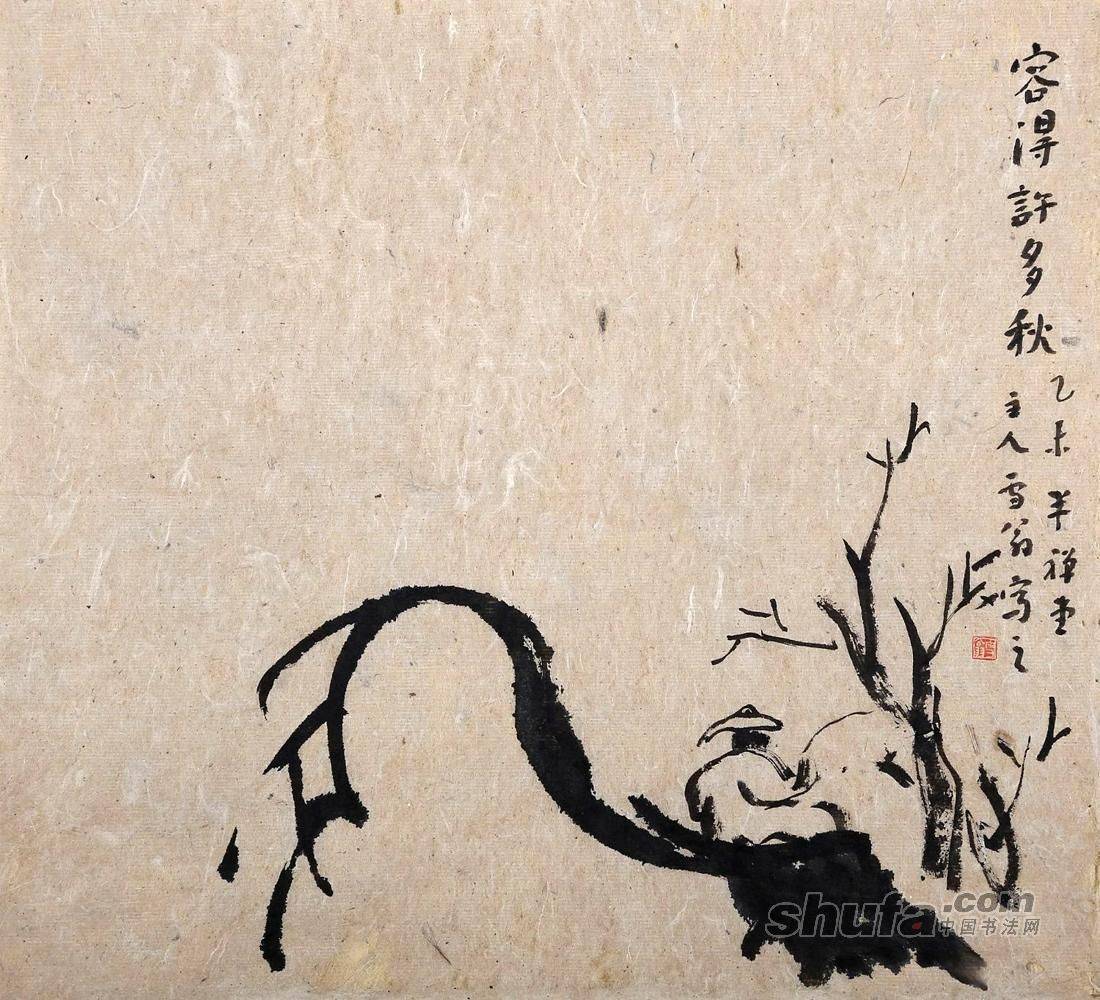 容得許多秋
乙未 半禅堂
主人雪翁写之
shufa.com
中国书法网